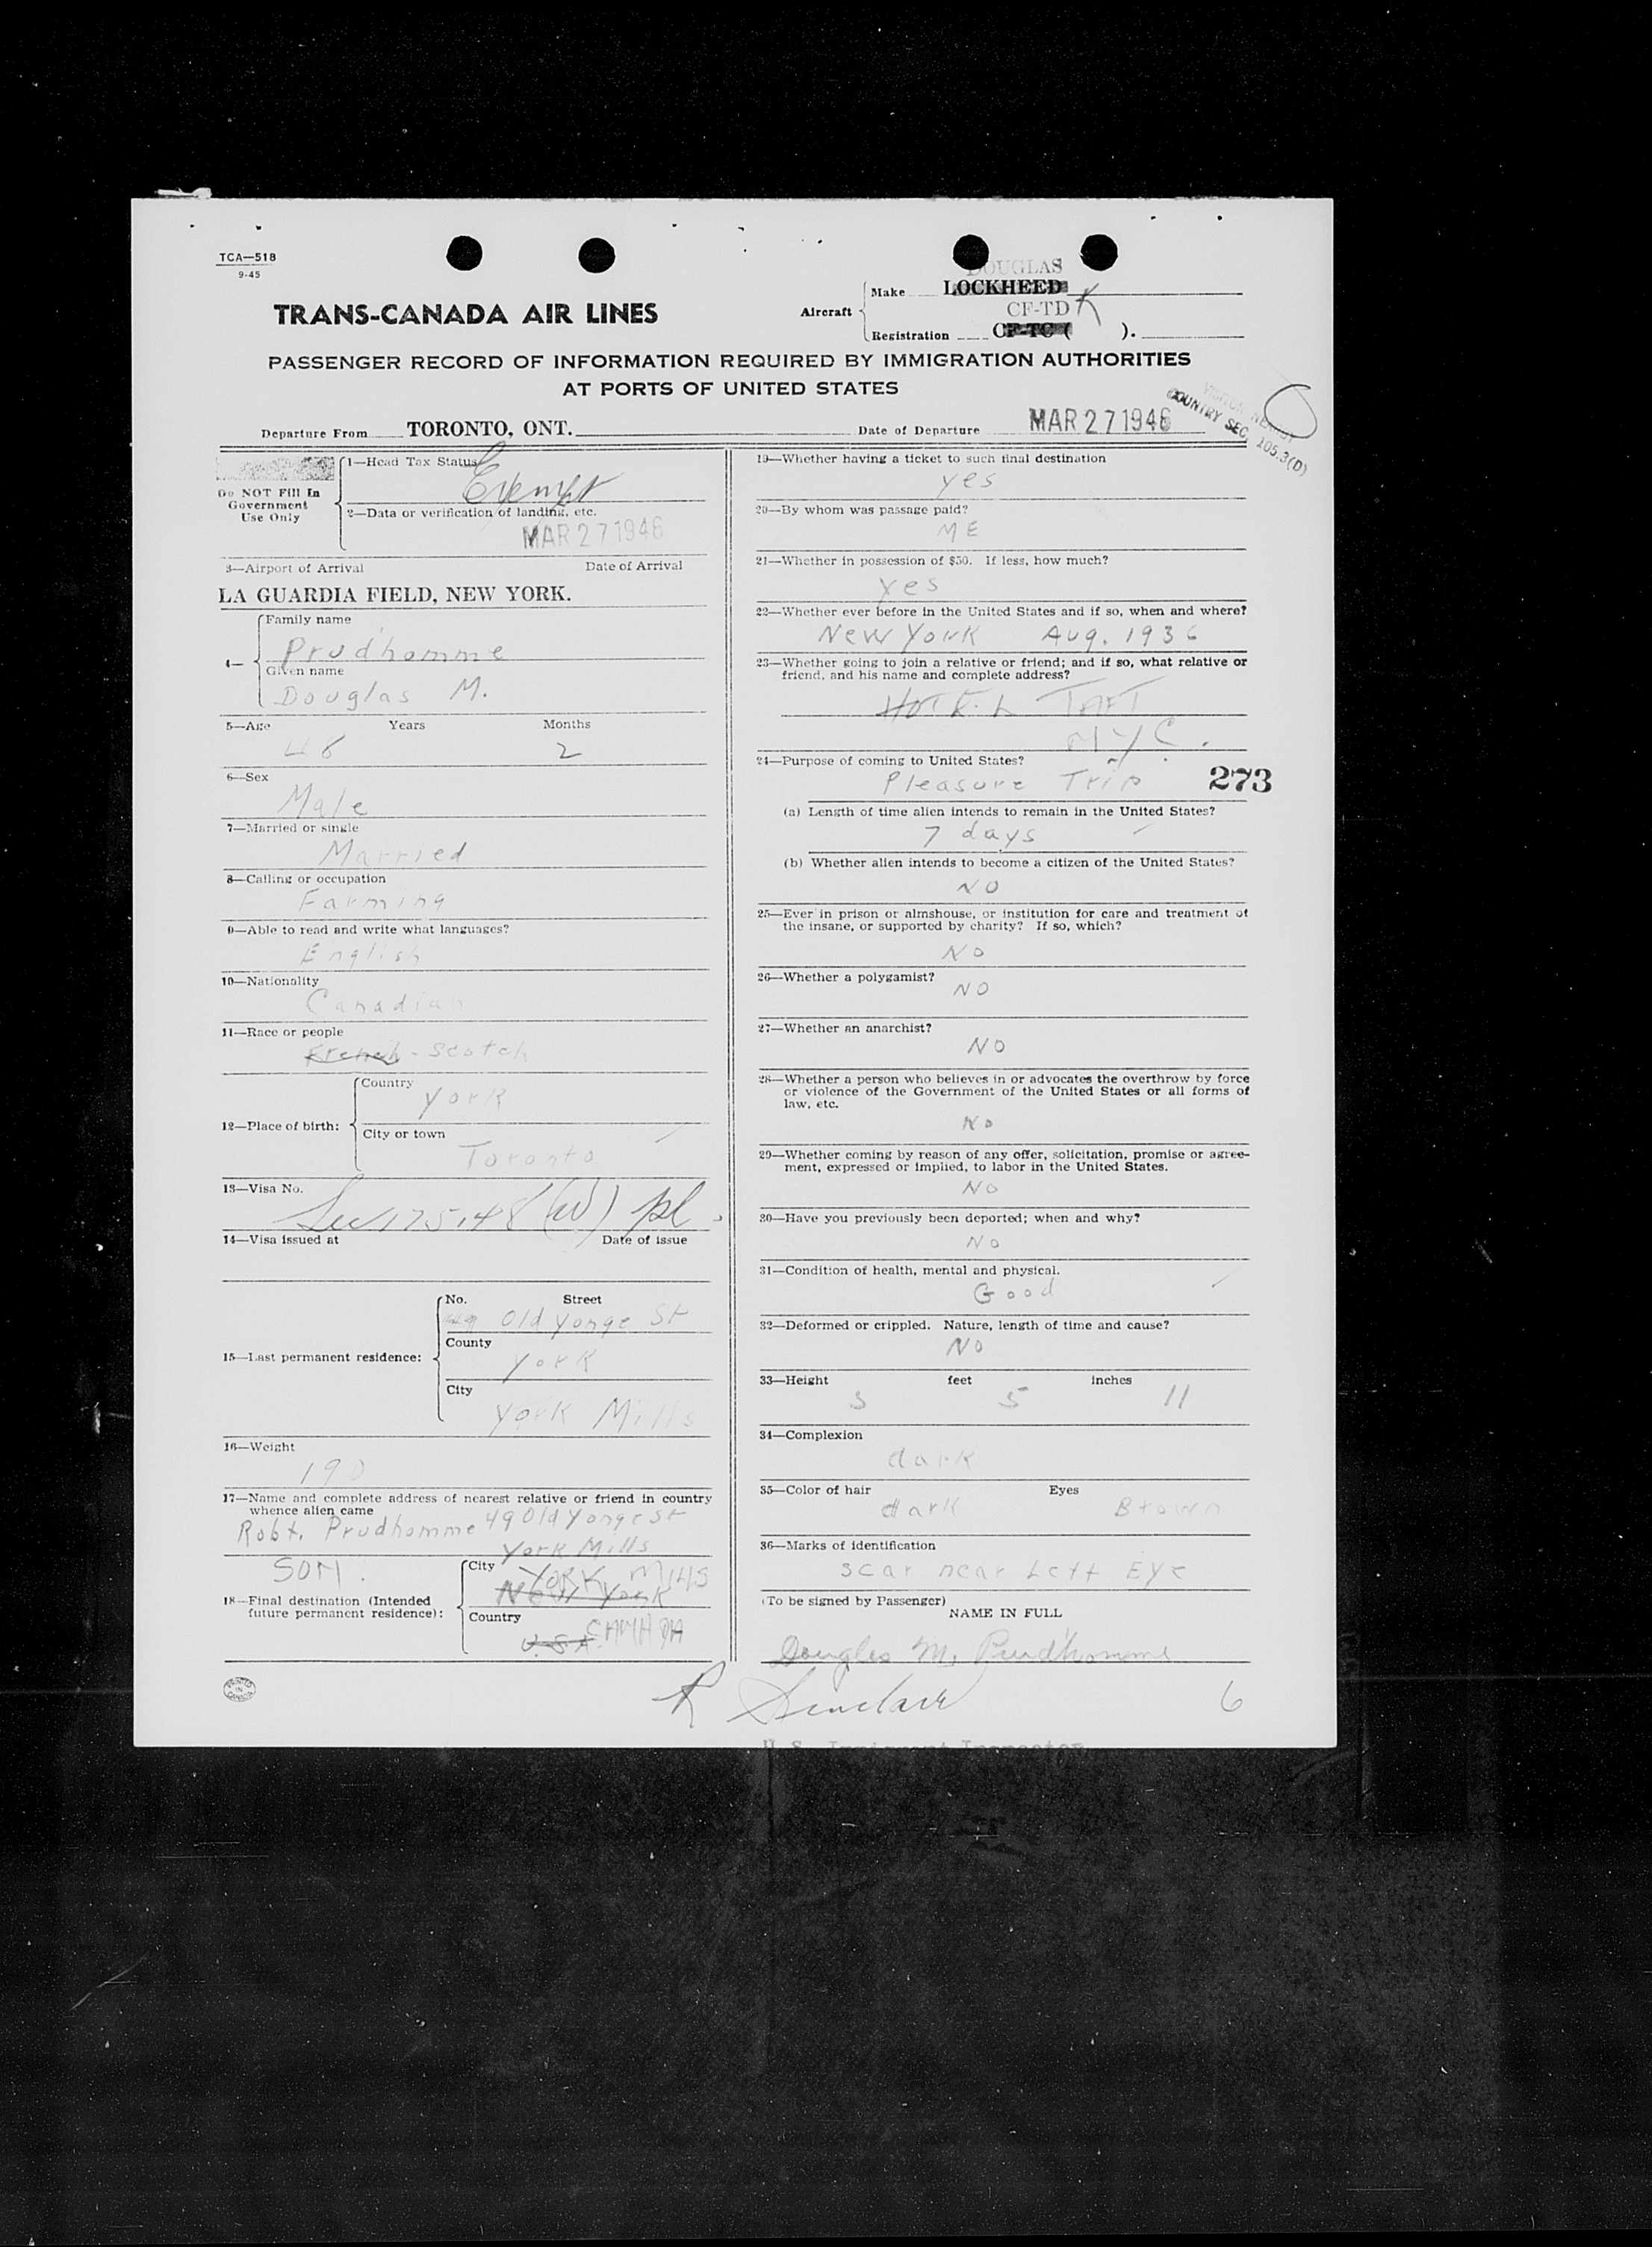 TCA—518
9-45
TRANS-CANADA AIR LINES
DOUGLAS
Aircraft
Make LOCKHEED
CF-TD K
Registration CF-TC ( ).
PASSENGER RECORD OF INFORMATION REQUIRED BY IMMIGRATION AUTHORITIES
AT PORTS OF UNITED STATES
COUNTRY SEC. 105.3(D)
Departure From TORONTO, ONT.
Date of Departure MAR 27 1946
Do NOT Fill In
Government
Use Only
1—Head Tax Status
Exempt
2—Data or verification of landing, etc.
MAR 27 1946
3—Airport of Arrival Date of Arrival
LA GUARDIA FIELD, NEW YORK.
4—
Family name
Prud'homme
Given name
Douglas M.
5—Age Years Months
48 2
6—Sex
Male
7—Married or single
Married
8—Calling or occupation
Farming
9—Able to read and write what languages?
English
10—Nationality
Canadian
11—Race or people
French - Scotch
12—Place of birth:
Country
York
City or town
Toronto
13—Visa No.
Sec 175.48 (a) pl.
14—Visa issued at Date of issue
15—Last permanent residence:
No. Street
49 Old Yonge St
County
York
City
York Mills
16—Weight
190
17—Name and complete address of nearest relative or friend in country
whence alien came
Robt. Prudhomme 49 Old Yonge St
York Mills
SON.
18—Final destination (Intended
future permanent residence):
City
YORK MILLS
New York
Country
U.S.A. CANADA
PRINTED IN CANADA
19—Whether having a ticket to such final destination
yes
20—By whom was passage paid?
ME
21—Whether in possession of $50. If less, how much?
yes
22—Whether ever before in the United States and if so, when and where?
New York Aug. 1936
23—Whether going to join a relative or friend; and if so, what relative or
friend, and his name and complete address?
HOTEL TAFT
NYC.
24—Purpose of coming to United States?
Pleasure Trip
273
(a) Length of time alien intends to remain in the United States?
7 days
(b) Whether alien intends to become a citizen of the United States?
NO
25—Ever in prison or almshouse, or institution for care and treatment of
the insane, or supported by charity? If so, which?
NO
26—Whether a polygamist?
NO
27—Whether an anarchist?
NO
28—Whether a person who believes in or advocates the overthrow by force
or violence of the Government of the United States or all forms of
law, etc.
No
29—Whether coming by reason of any offer, solicitation, promise or agree-
ment, expressed or implied, to labor in the United States.
No
30—Have you previously been deported; when and why?
No
31—Condition of health, mental and physical.
Good
32—Deformed or crippled. Nature, length of time and cause?
No
33—Height feet inches
5 11
34—Complexion
dark
35—Color of hair Eyes
dark Brown
36—Marks of identification
scar near Left Eye
(To be signed by Passenger)
NAME IN FULL
Douglas M. Prud'homme
R Sinclair
6
U.S. Immigrant Inspector